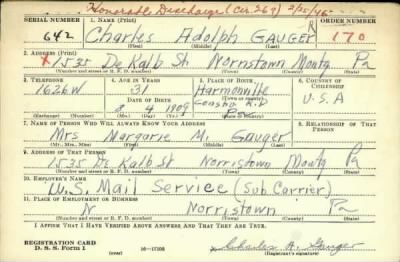 Honorable Discharge (Cir. 269) 2/25/46
SERIAL NUMBER 1. NAME (Print) ORDER NUMBER
642 Charles Adolph Gauger 170
(First) (Middle) (Last)
2. ADDRESS (Print)
X 1535 De Kalb St Norristown Montg Pa
(Number and street or R. F. D. number) (Town) (County) (State)
3. TELEPHONE 4. AGE IN YEARS 5. PLACE OF BIRTH 6. COUNTRY OF CITIZENSHIP
1626W 31 Harmonville
DATE OF BIRTH (Town or county)
8 9 1909 Consho R.D U.S.A
Pa
(Exchange) (Number) (Mo.) (Day) (Yr.) (State or country)
7. NAME OF PERSON WHO WILL ALWAYS KNOW YOUR ADDRESS 8. RELATIONSHIP OF THAT PERSON
Mrs Margarie M. Gauger
(Mr., Mrs., Miss) (First) (Middle) (Last)
9. ADDRESS OF THAT PERSON
1535 De Kalb St Norristown Montg Pa
(Number and street or R. F. D. number) (Town) (County) (State)
10. EMPLOYER'S NAME
U.S. Mail Service (Sub Carrier)
11. PLACE OF EMPLOYMENT OR BUSINESS
Norristown Pa
(Number and street or R. F. D. number) (Town) (County) (State)
I AFFIRM THAT I HAVE VERIFIED ABOVE ANSWERS AND THAT THEY ARE TRUE.
REGISTRATION CARD
D. S. S. Form 1 (over) 16—17105 X Charles A. Gauger
(Registrant's signature)